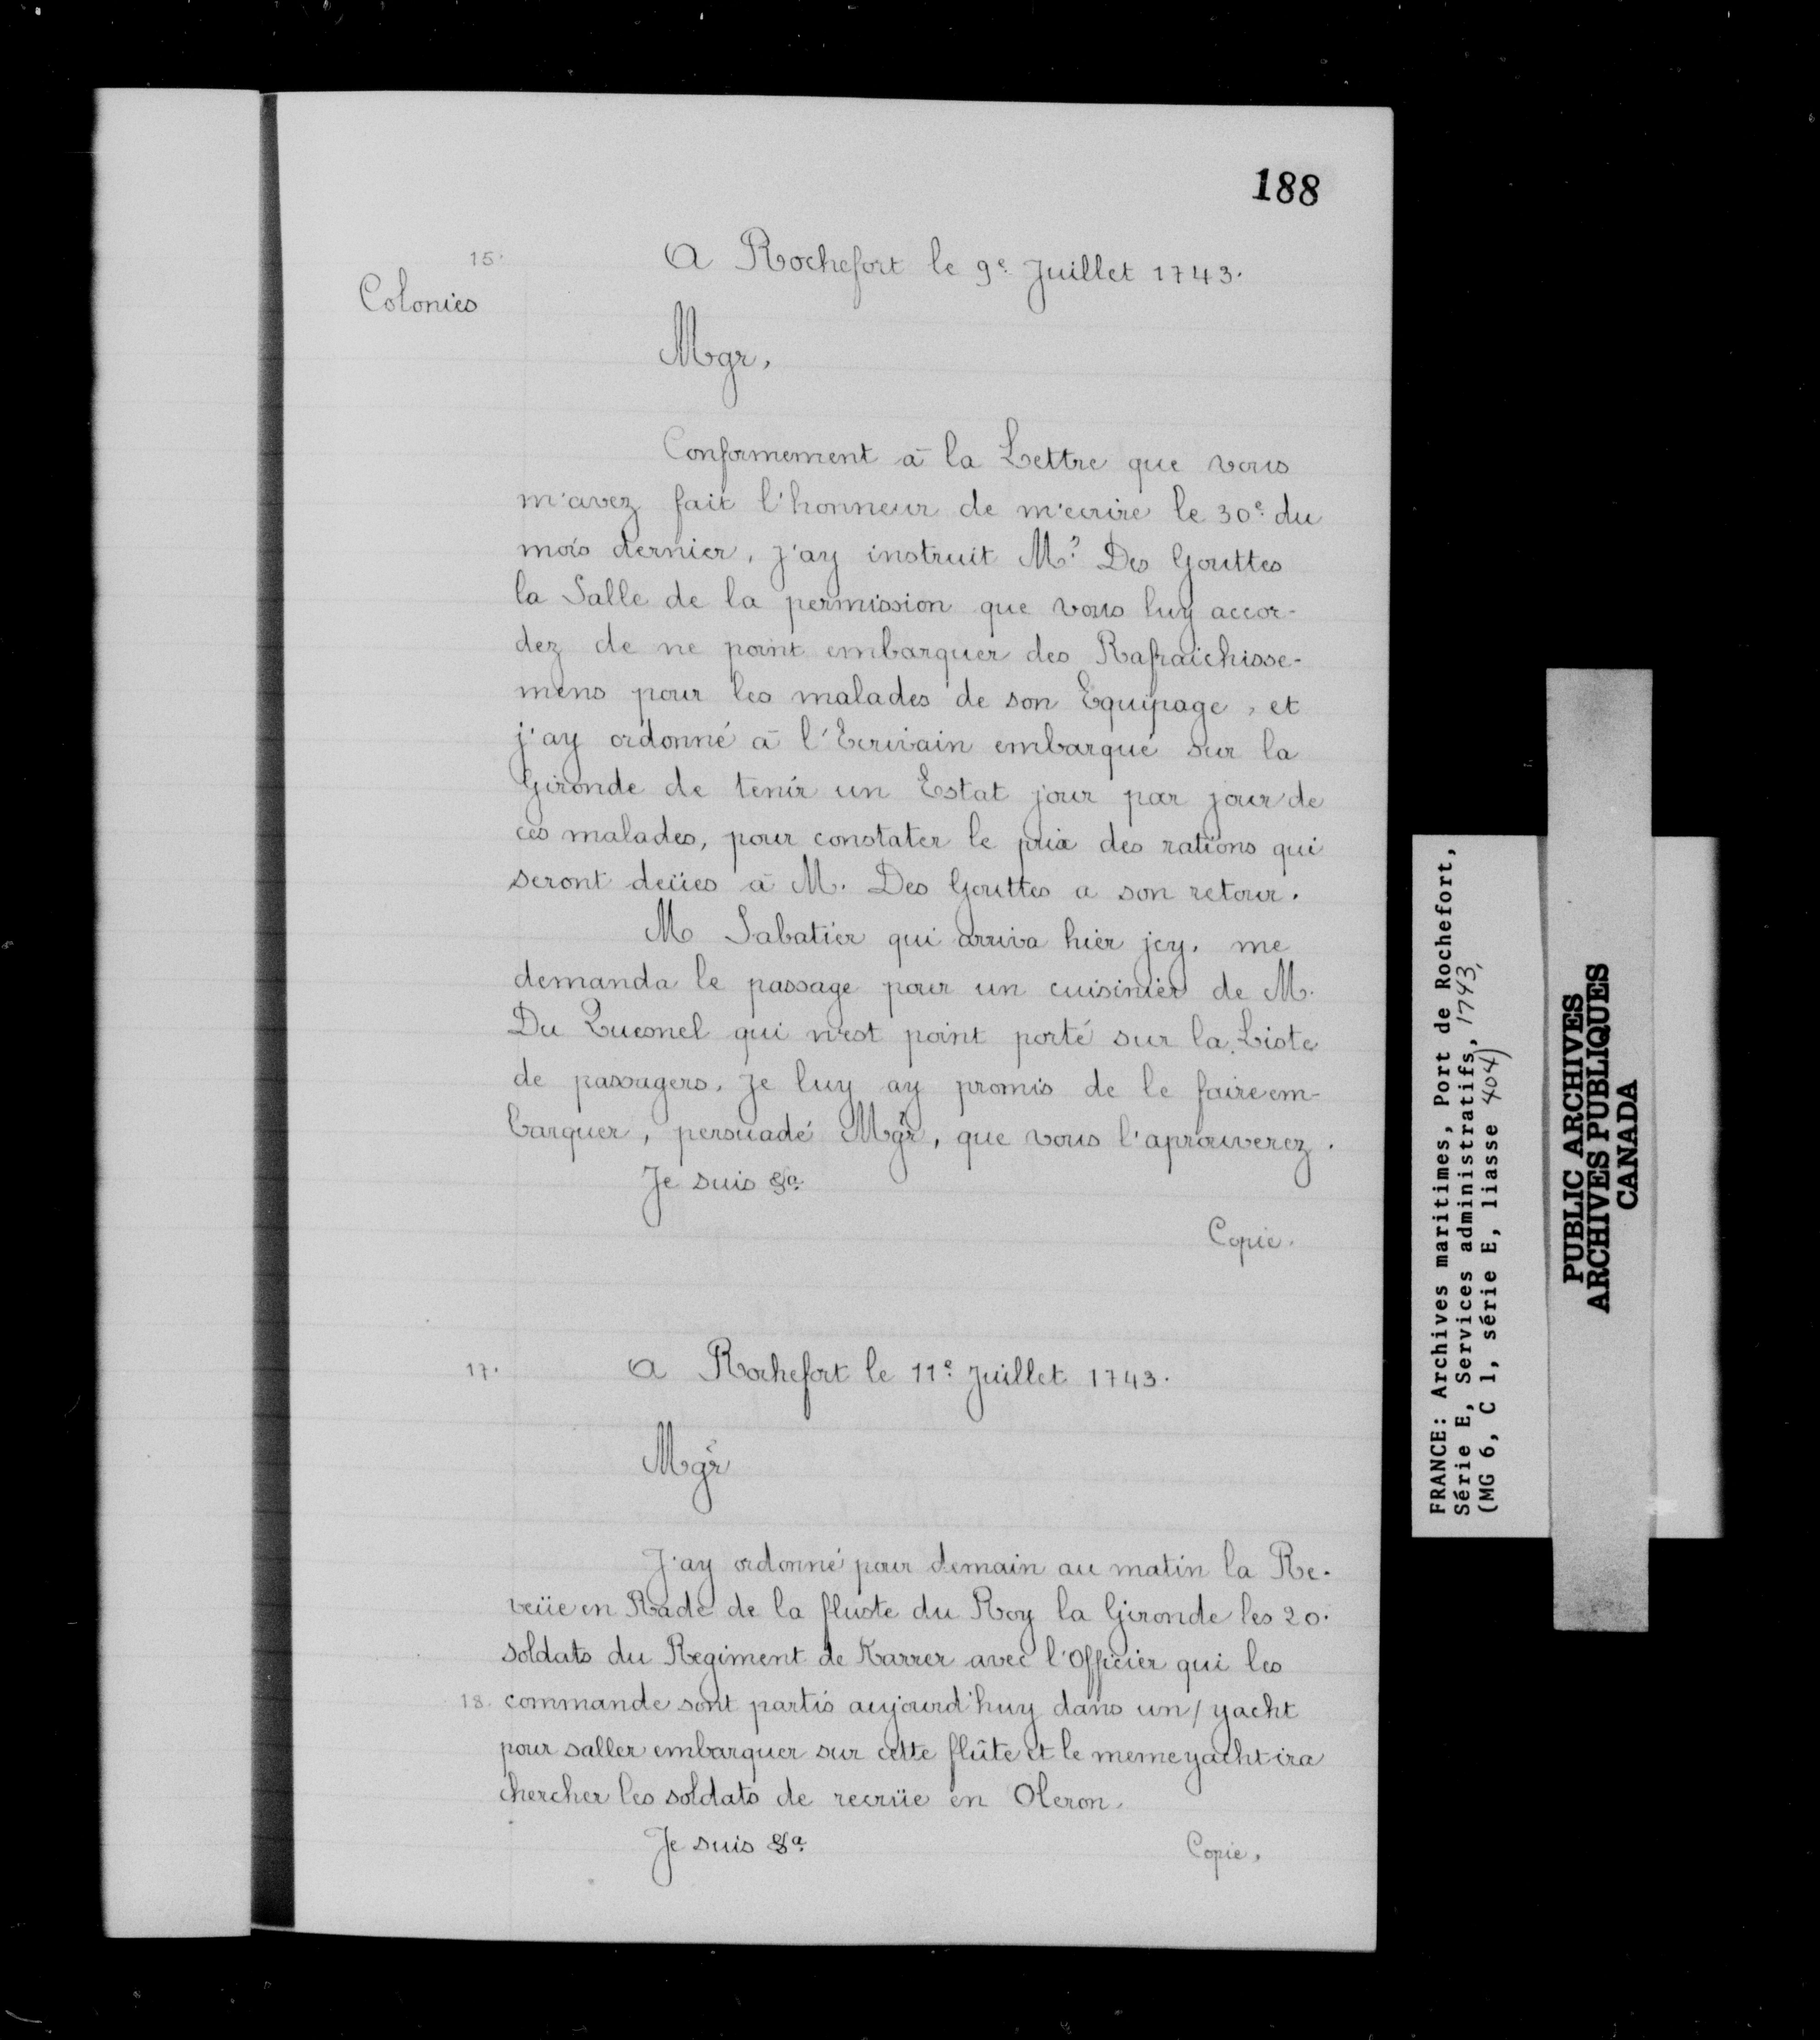 188
15.
A Rochefort le 9e Juillet 1743.
Colonies
Mgr,
Conformement à la Lettre que vous
m'avez fait l'honneur de m'ecrire le 30e du
mois dernier, j'ay instruit Mr Des Gouttes
la Salle de la permission que vous luy accor-
dez de ne point embarquer des Rafraichisse-
mens pour les malades de son Equipage, et
j'ay ordonné à l'Ecrivain embarqué sur la
Gironde de tenir un Estat jour par jour de
ces malades, pour constater le prix des rations qui
seront deües à M. Des Gouttes a son retour.
M Sabatier qui arriva hier jcy. me
demanda le passage pour un cuisinier de M.
Du Quesnel qui n'est point porté sur la Liste
de passagers. Je luy ay promis de le faire em-
barquer, persuadé Mgr, que vous l'aprouverez.
Je suis &a
Copie.
17.
A Rochefort le 11e Juillet 1743.
Mgr
J'ay ordonné pour demain au matin la Re-
veüe en Rade de la fluste du Roy la Gironde les 20.
soldats du Regiment de Karrer avec l'Officier qui les
18. commande sont partis aujourd'huy dans un / yacht
pour saller embarquer sur cette flûte et le meme yacht ira
chercher les soldats de recrüe en Oleron.
Je suis &a
Copie.
FRANCE: Archives maritimes, Port de Rochefort,
Série E, Services administratifs, 1743,
(MG 6, C 1, série E, liasse 404)
PUBLIC ARCHIVES
ARCHIVES PUBLIQUES
CANADA